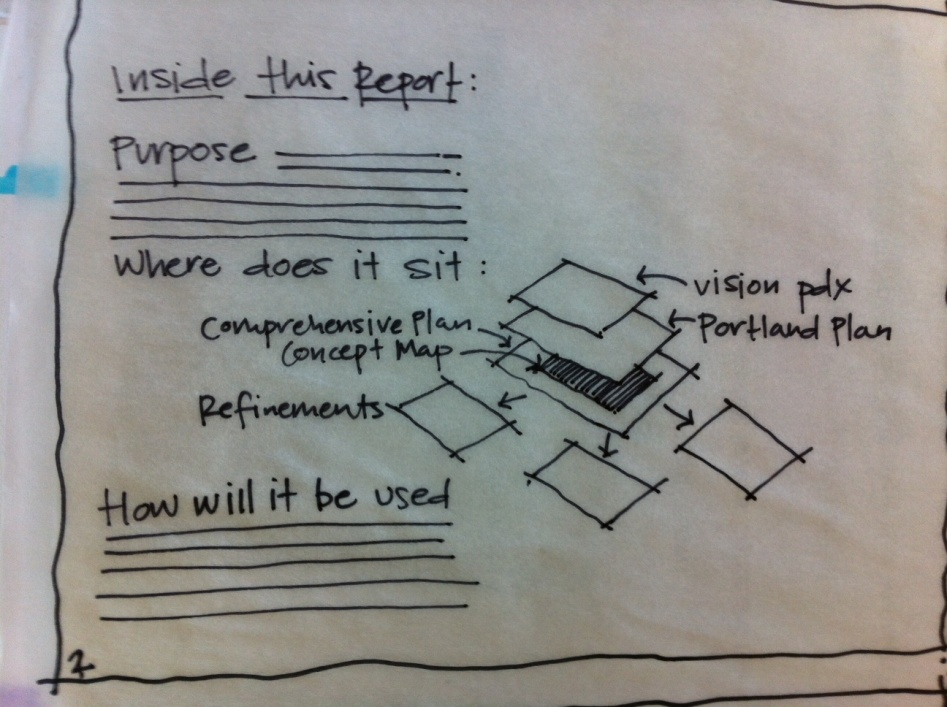 Inside this Report:
Purpose
Where does it sit:
vision pdx
Portland Plan
Comprehensive Plan
Concept Map
Refinements
How will it be used
2